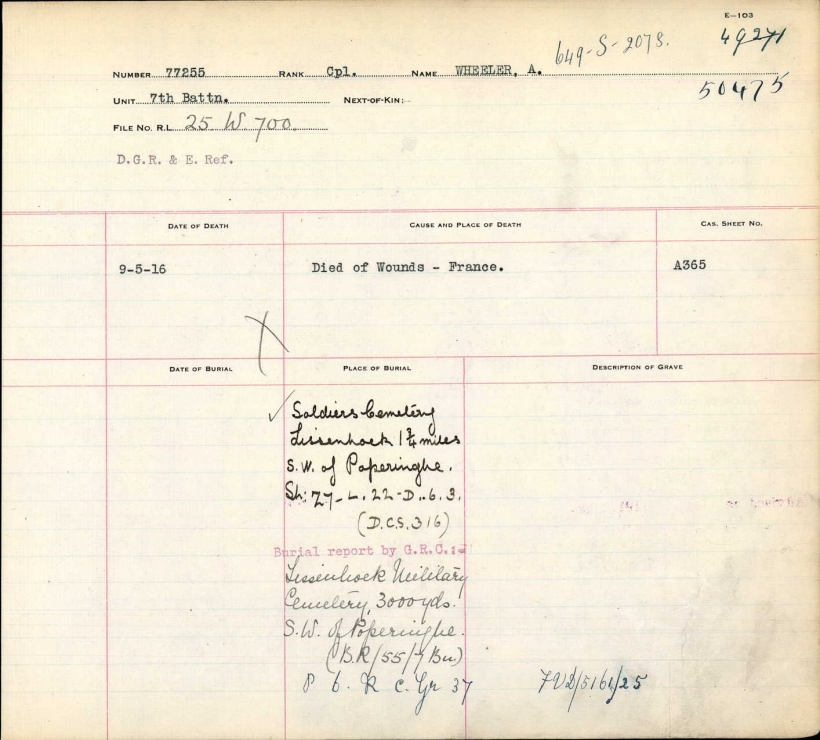 E-103
649-S-2078.
49271
NUMBER 77255 RANK Cpl. NAME WHEELER, A.
50475
UNIT 7th Battn. NEXT-OF-KIN:
FILE NO. R.L. 25. W. 700.
D.G.R. & E. Ref.
DATE OF DEATH CAUSE AND PLACE OF DEATH CAS. SHEET NO.
9-5-16 Died of Wounds - France. A365
DATE OF BURIAL PLACE OF BURIAL DESCRIPTION OF GRAVE
Soldiers Cemetery
Lissenhoek 1¾ miles
S.W. of Poperinghe.
Sh: 27-L.22-D..6.3.
(D.C.S.316)
Burial report by G.R.C.:-
Lissenhoek Military
Cemetery, 3000yds.
S.W. of Poperinghe.
(B.R/55/7 Bn)
P 6. R C. Gr 37